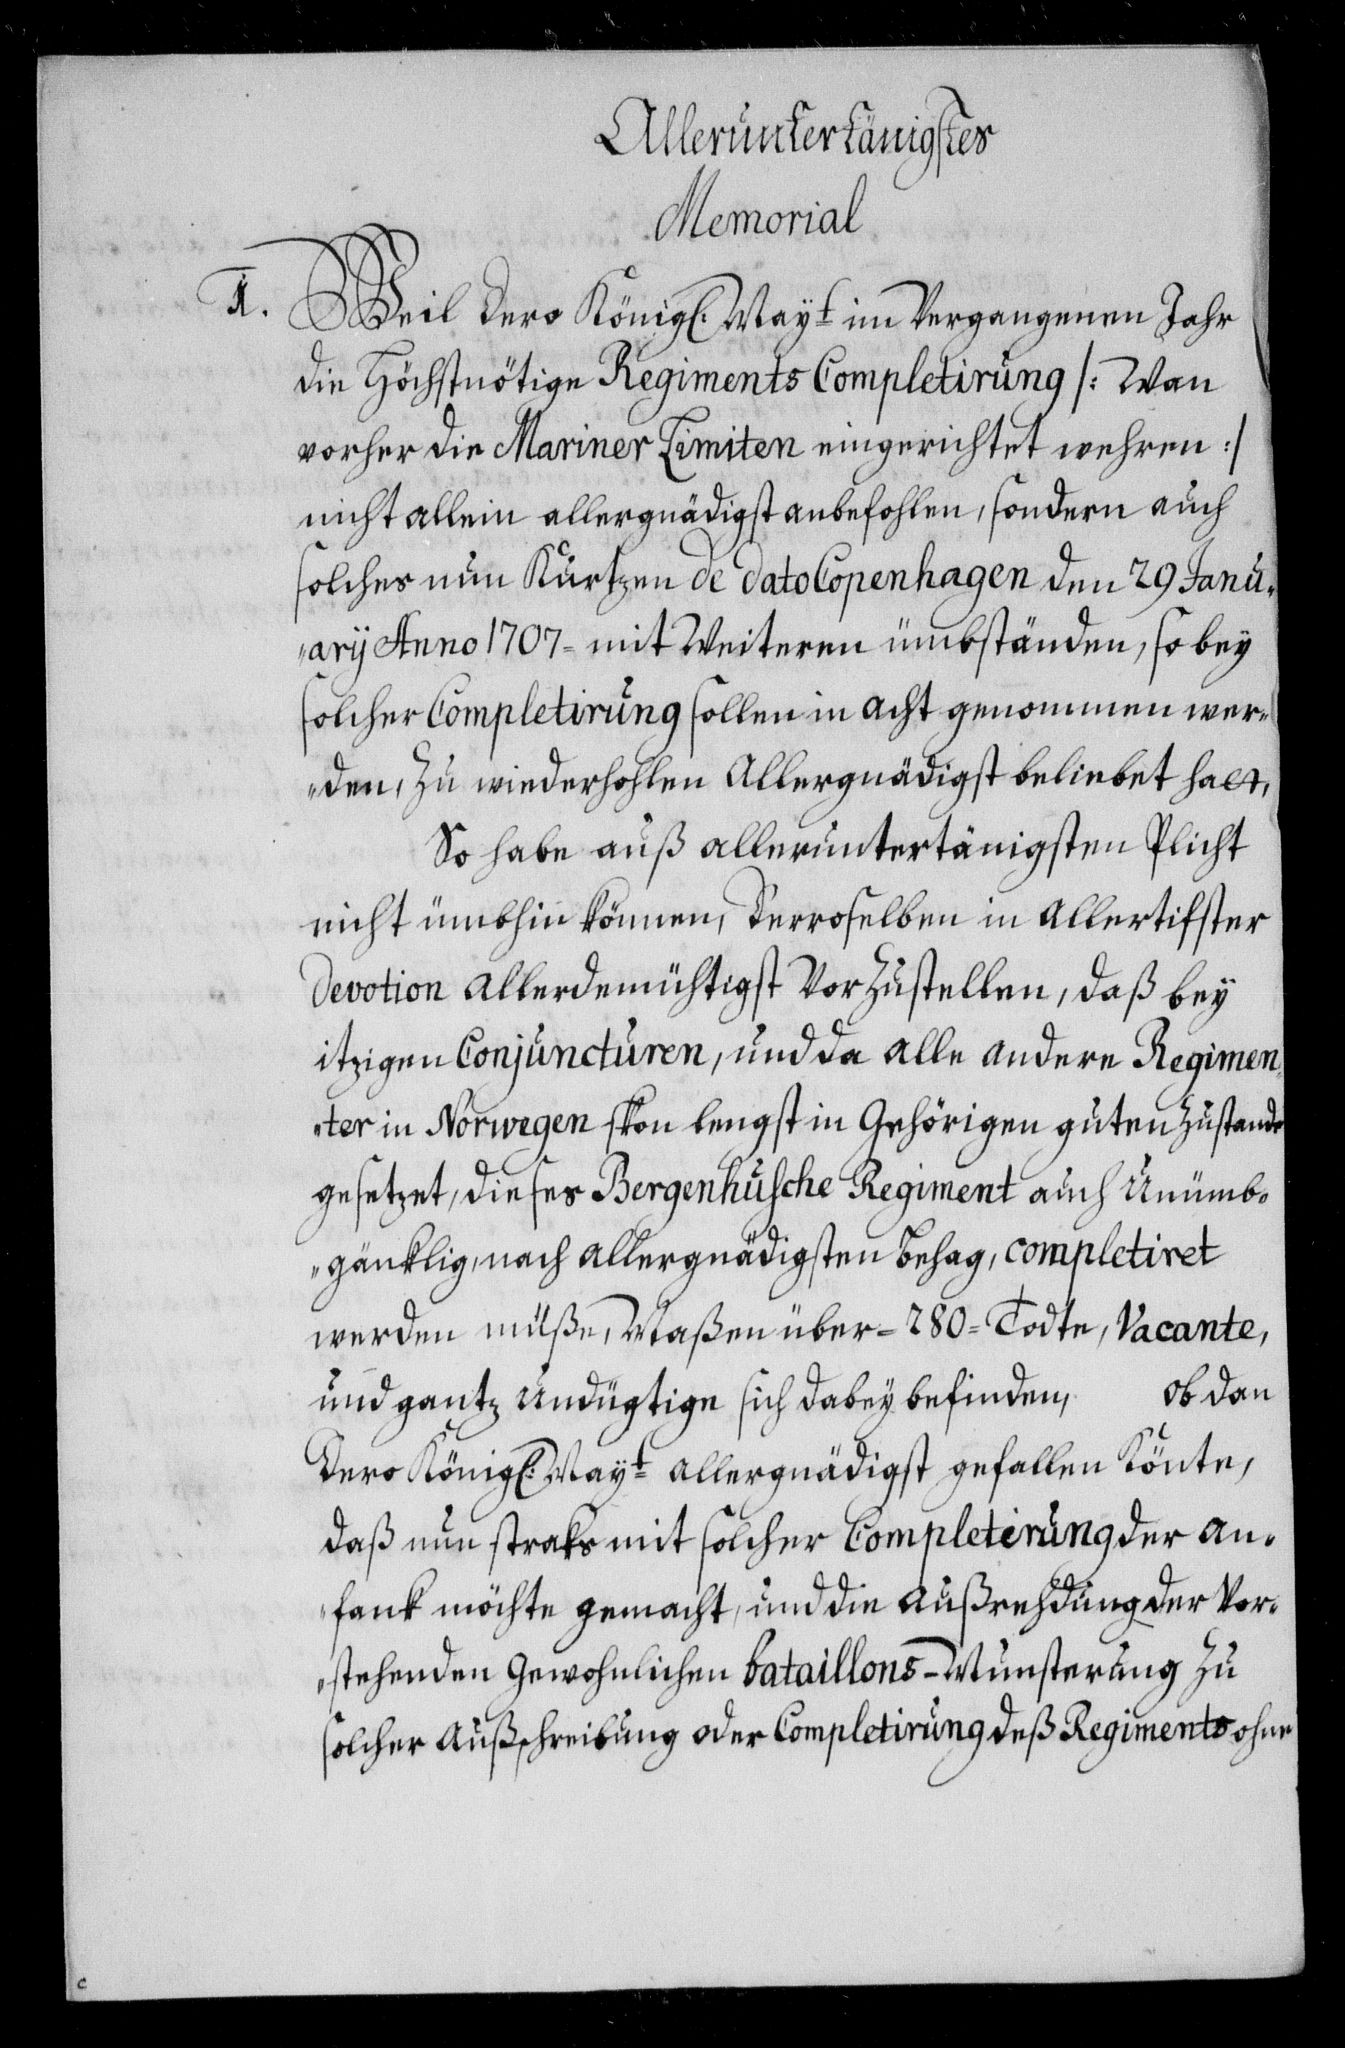 Alleruntertänigstes
Memorial
1. Weil dero Königl: Mayt im Vergangenen Jahr
die Höchstnötige Regiments Completirung /: Wan
vorher die Mariner Limiten eingerichtet wehren :/
nicht allein allergnädigst anbefohlen, sondern auch
solches nun Kürtzen de dato Copenhagen den 29 Janu„
„arij Anno 1707 = mit Weiteren ümbständen, so bey
solcher Completirung sollen in acht genommen wer„
„den, zu wiederhohlen Allergnädigst beliebet hat,
So habe auß alleruntertänigsten Plicht
nicht ümbhin können, Derroselben in Allertifster
Devotion Allerdemühtigst VorZustellen, daß bey
itzigen Conjuncturen, und da alle andere Regimen„
„ter in Norwegen skon lengst in Gehörigen guten Zustande
gesetzet, dieses Bergenhusche Regiment auch Unümb„
„gänklig, nach allergnädigsten Behag, completiret
werden müße, Maßen über = 280 = Todte, Vacante,
und gantz Undügtige sich dabey befinden, ob dan
Dero Königl: Mayt allergnädigst gefallen Könte,
daß nun straks mit solcher Completirung der an„
„fank möchte gemacht, und die Außrehdung der Vor„
„stehenden Gewohnlichen bataillons-Munsterung zu
solcher Außschreibung oder Completirung deß Regiments ohne